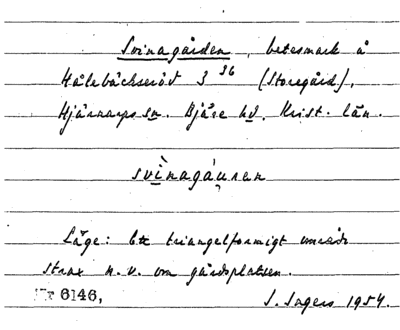 Svinagården, betesmark å
Hålebäckseröd 3 36 (Storegård),
Hjärnarps sn. Bjäre hd. Krist. län.
svìnagáụren
Läge: Ett triangelformigt område
strax n.v. om gårdsplatsen.
6146, S. Ingers 1954.